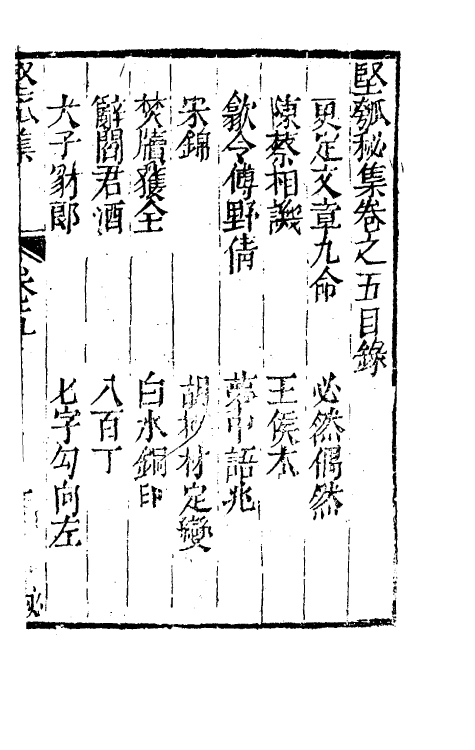 堅瓠秘集卷之五目錄
更定文章九命　必然偶然
陳蔡相譏　王侯杰
歙令傅野倩　夢中語兆
宋錦　胡抄材定變
焚牘獲全　白水銅印
辭閻君酒　八百丁
犬子豺郎　七字勾向左
堅瓠集　卷之五　秘